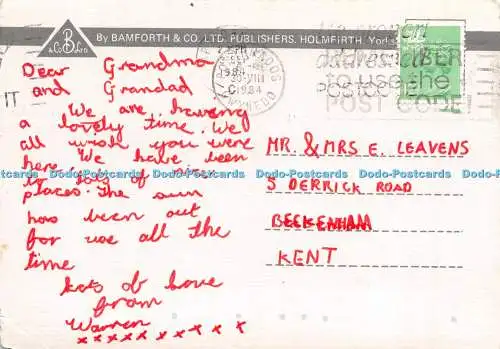 By BAMFORTH & CO. LTD. PUBLISHERS. HOLMFIRTH,
B
& Co Ltd
1984
GWYNEDD
to use the
POST CODE
Dear Grandma
and Grandad
We are having
a lovely time. We
all wish you were
here. We have been
to lots of nice
places. The sun
has been out
for use all the
time
Lots of love
from
Warren
xxxxxxxxxx
MR. & MRS E. LEAVENS
5 DERRICK ROAD
BECKENHAM
KENT
Dodo-Postcards Dodo-Postcards Dodo-Postcards Dodo-Postcards Dodo-Postcards Dodo-Postcards